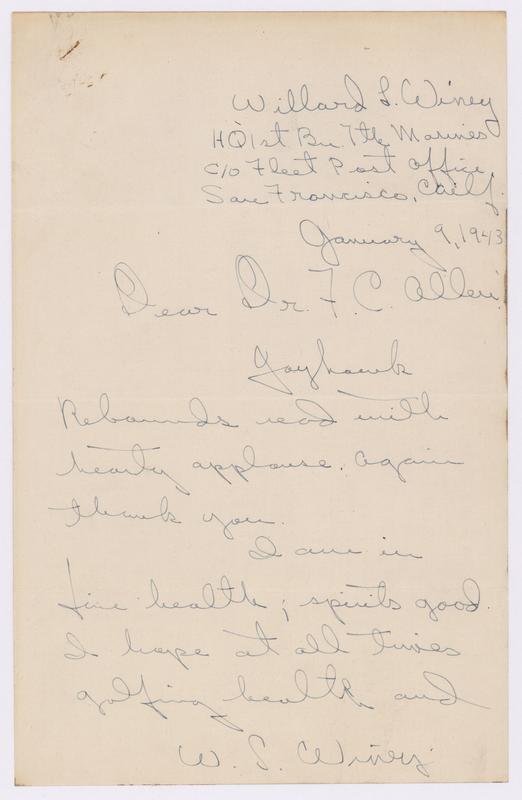 Willard S. Winey
HQ 1st Bn. 7th Marines
C/O Fleet Post Office,
San Francisco, Cailf.
January 9, 1943
Dear Dr. F. C. Allen:
Jayhawk
Rebounds read with
hearty applause. Again
thank you.
I am in
fine health; spirits good.
I hope at all times
golfing health and
W. S. Winey